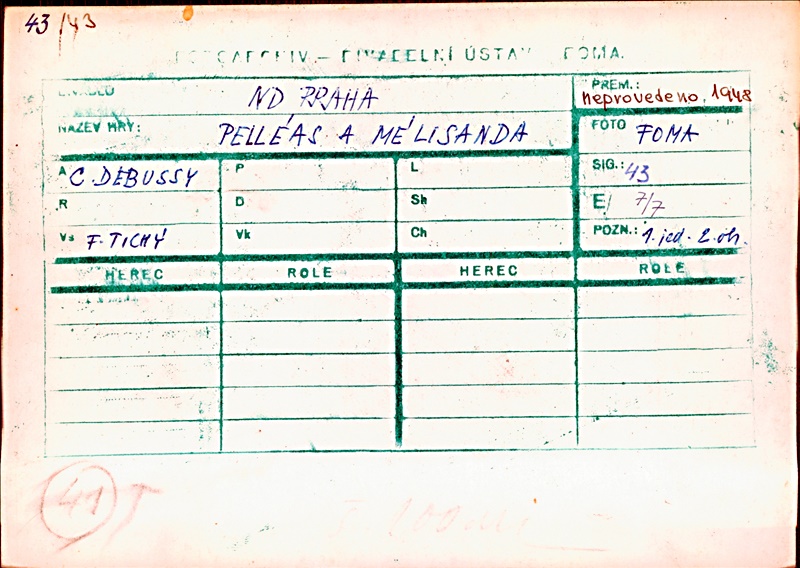 43/43
FOTOARCHIV – DIVADELNÍ ÚSTAV FOMA.
DIVADLO ND PRAHA
PREM.: neprovedeno, 1948
NÁZEV HRY: PELLÉAS A MÉLISANDA
FOTO FOMA
A C. DEBUSSY P L
SIG.: 43
R D Sh
E/ 7/7
Vs F. TICHÝ Vk Ch
POZN.: 1. jed. 2. oh.
HEREC ROLE HEREC ROLE
41